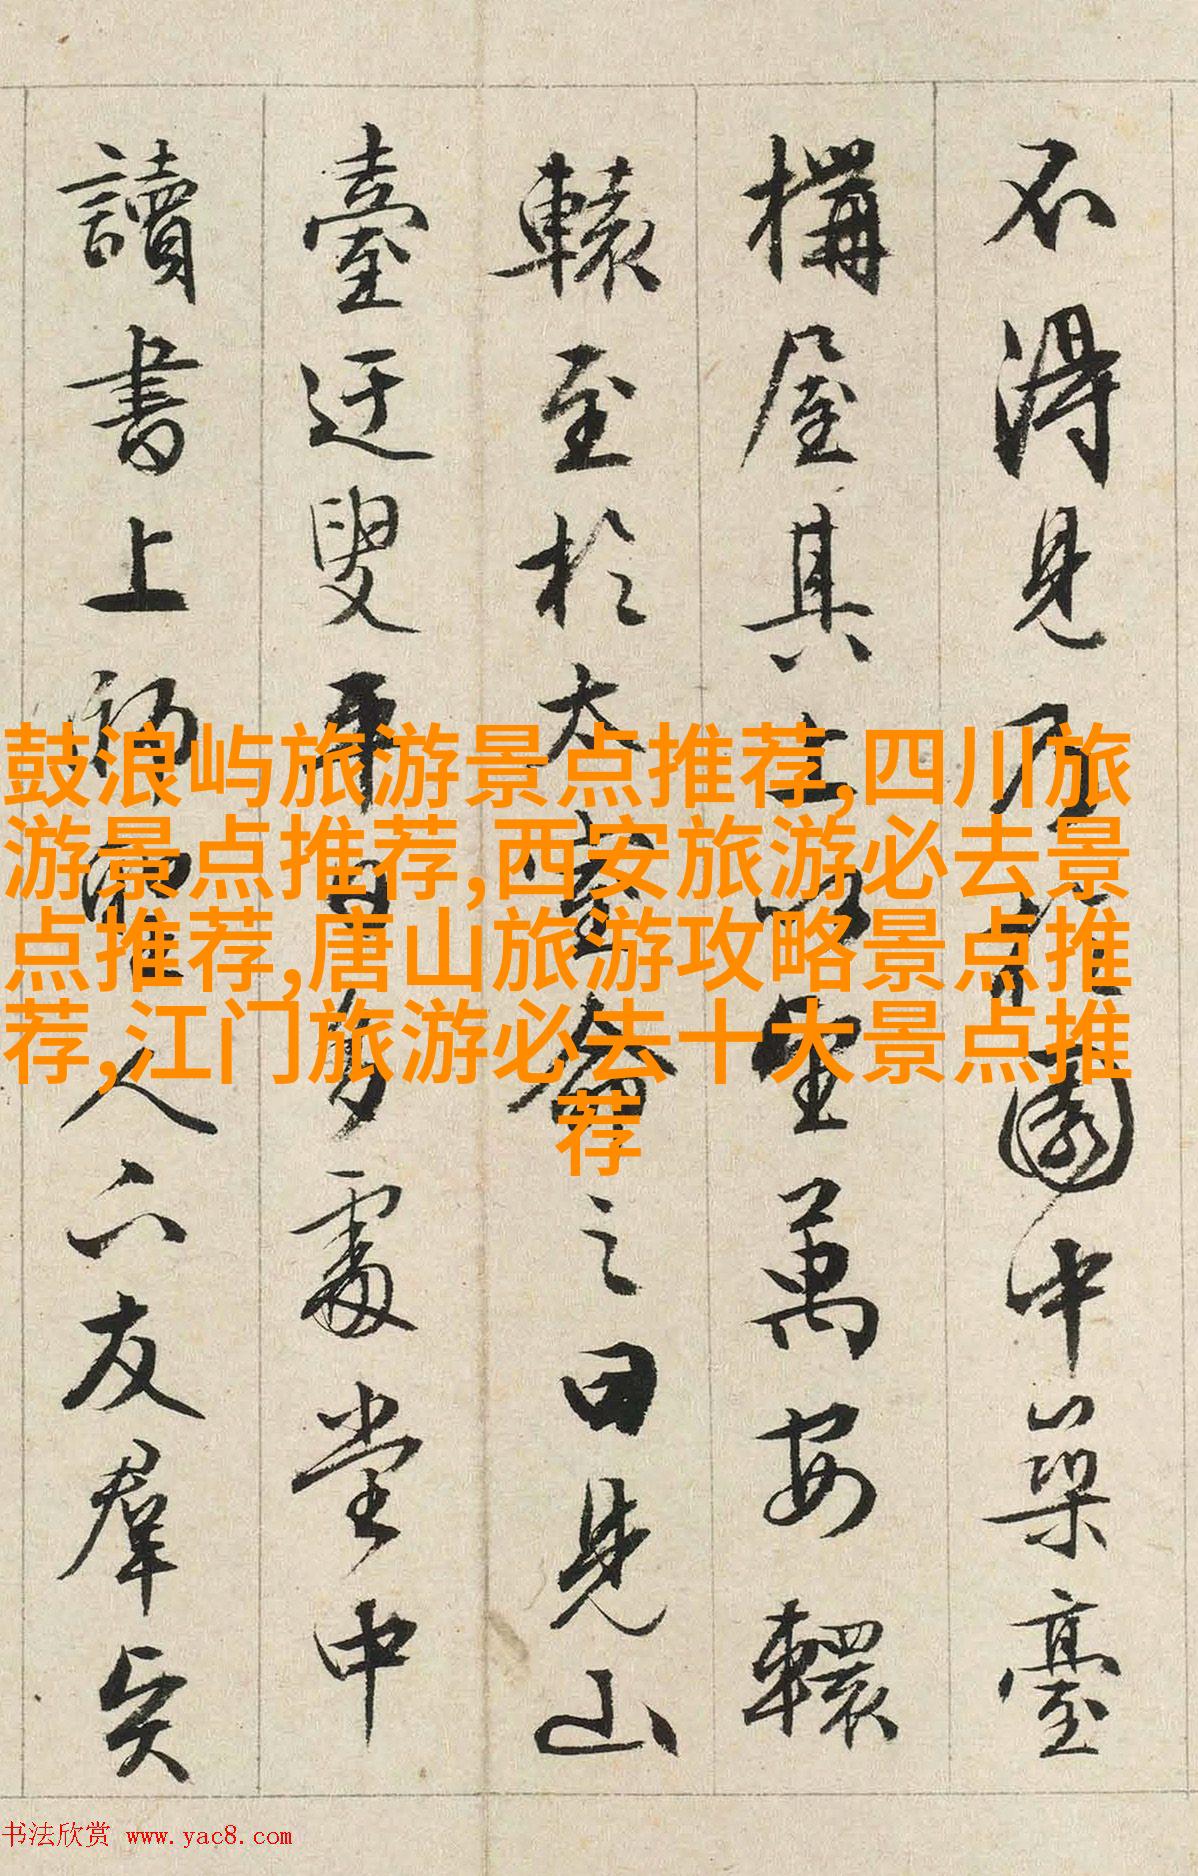 不得見乃於園中築臺
構屋其上以望萬安轘
轅至於太室命之曰見山
臺迂叟平日多處堂中
讀書上師聖人下友羣賢
鼓浪屿旅游景点推荐,四川旅
游景点推荐,西安旅游必去景
点推荐,唐山旅游攻略景点推
荐,江门旅游必去十大景点推
荐
书法欣赏 www.yac8.com